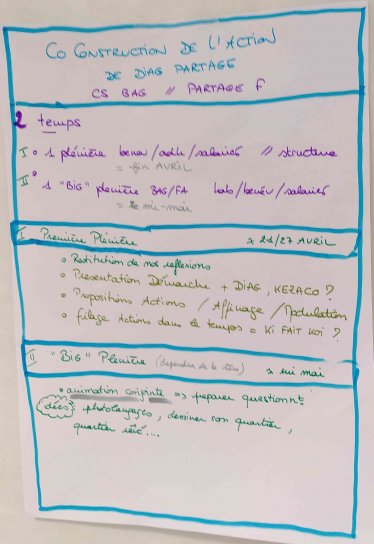 CO CONSTRUCTION DE L'ACTION
DE DIAG PARTAGE
CS BAG // PARTAGE F
2 temps
I o 1 plénière bénév/adh/salariés // structure
= fin AVRIL
II o 1 "BIG" plénière BAG/FA hab/bénév/salariés
= mi-mai
I Première Plénière 21/27 AVRIL
o Restitution de nos réflexions
o Présentation Démarche + DIAG, KEZACO ?
o Propositions Actions / Affinage / Modulation
o filage Actions dans le temps = Ki FAIT KOI ?
II "BIG" Plénière (dépendra de la) mi mai
o animation conjointe => préparer questionnt
idées photolangages, dessiner son quartier,
quartier ....